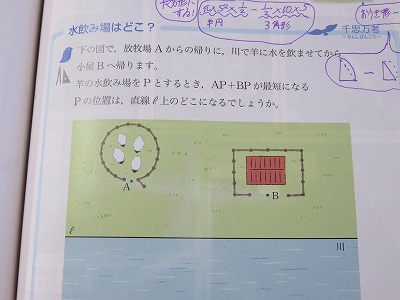 長方形に
する!
5×5×π×1/2 − 1/2×10×5
半円
3角形
おうぎ形 −
水飲み場はどこ?
千思万考
下の図で，放牧場Aからの帰りに，川で羊に水を飲ませてから
小屋Bへ帰ります。
羊の水飲み場をPとするとき，AP＋BPが最短になる
Pの位置は，直線ℓ上のどこになるでしょうか。
A
B
ℓ
川